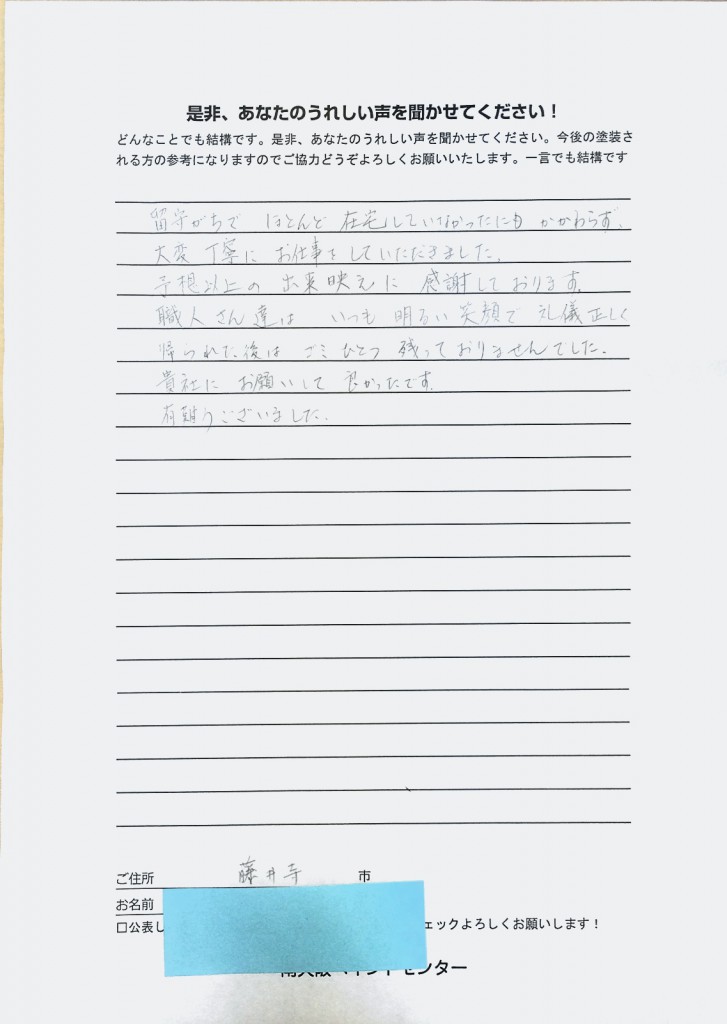 是非、あなたのうれしい声を聞かせてください！
どんなことでも結構です。是非、あなたのうれしい声を聞かせてください。今後の塗装さ
れる方の参考になりますのでご協力どうぞよろしくお願いいたします。一言でも結構です
留守がちで ほとんど 在宅していなかったにも かかわらず、
大変 丁寧に お仕事をしていただきました。
予想以上の 出来映えに 感謝しております。
職人さん達は いつも 明るい笑顔で 礼儀正しく
帰られた後は ゴミひとつ 残っておりませんでした。
貴社に お願いして 良かったです。
有難うございました。
ご住所 藤井寺 市
お名前
口公表し ェックよろしくお願いします！
南大阪ペイントセンター